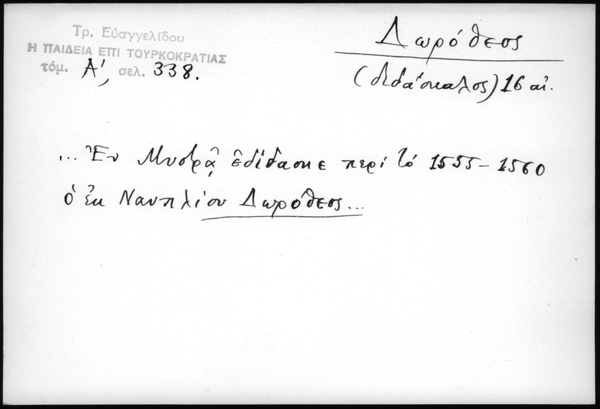 Τρ. Εὐαγγελίδου
Η ΠΑΙΔΕΙΑ ΕΠΙ ΤΟΥΡΚΟΚΡΑΤΙΑΣ
τόμ. Α', σελ. 338.
Δωρόθεος
(διδάσκαλος) 16 αἰ.
... Ἐν Μυστρᾷ ἐδίδασκε περί τό 1555-1560
ὁ ἐκ Ναυπλίου Δωρόθεος...